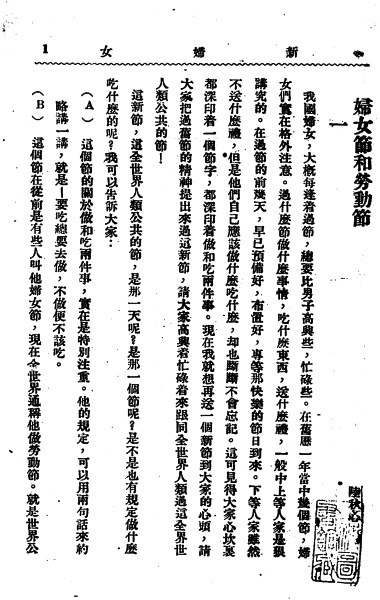 新婦女
1
婦女節和勞動節
一
陸秋心
我國婦女，大概每逢着過節，總要比男子高興些，忙碌些。在舊曆一年當中幾個節，婦
女們實在格外注意。過什麼節做什麼事情，吃什麼東西，送什麼禮，一般中上等人家是很
講究的。在過節的前幾天，早已預備好，布置好，專等那快樂的節日到來。下等人家雖然
不送什麼禮，但是他們自己應該做什麼吃什麼，却也斷斷不會忘記。這可見得大家心坎裏
都深印着一個節字，都深印着做和吃兩件事。現在我就想再送一個新節到大家的心頭，請
大家把過舊節的精神提出來過這新節，請大家高興着忙碌着來跟同全世界人類過這全世
人類公共的節！
這新節，這全世界人類公共的節，是那一天呢？是那一個節呢？是不是也有規定做什麼
吃什麼的呢？我可以告訴大家：
（A） 這個節的關於做和吃兩件事，實在是特別注重。他的規定，可以用兩句話來約
略講一講，就是—要吃總要去做，不做便不該吃。
（B） 這個節在從前是有些人叫他婦女節，現在全世界通稱他做勞動節。就是世界公